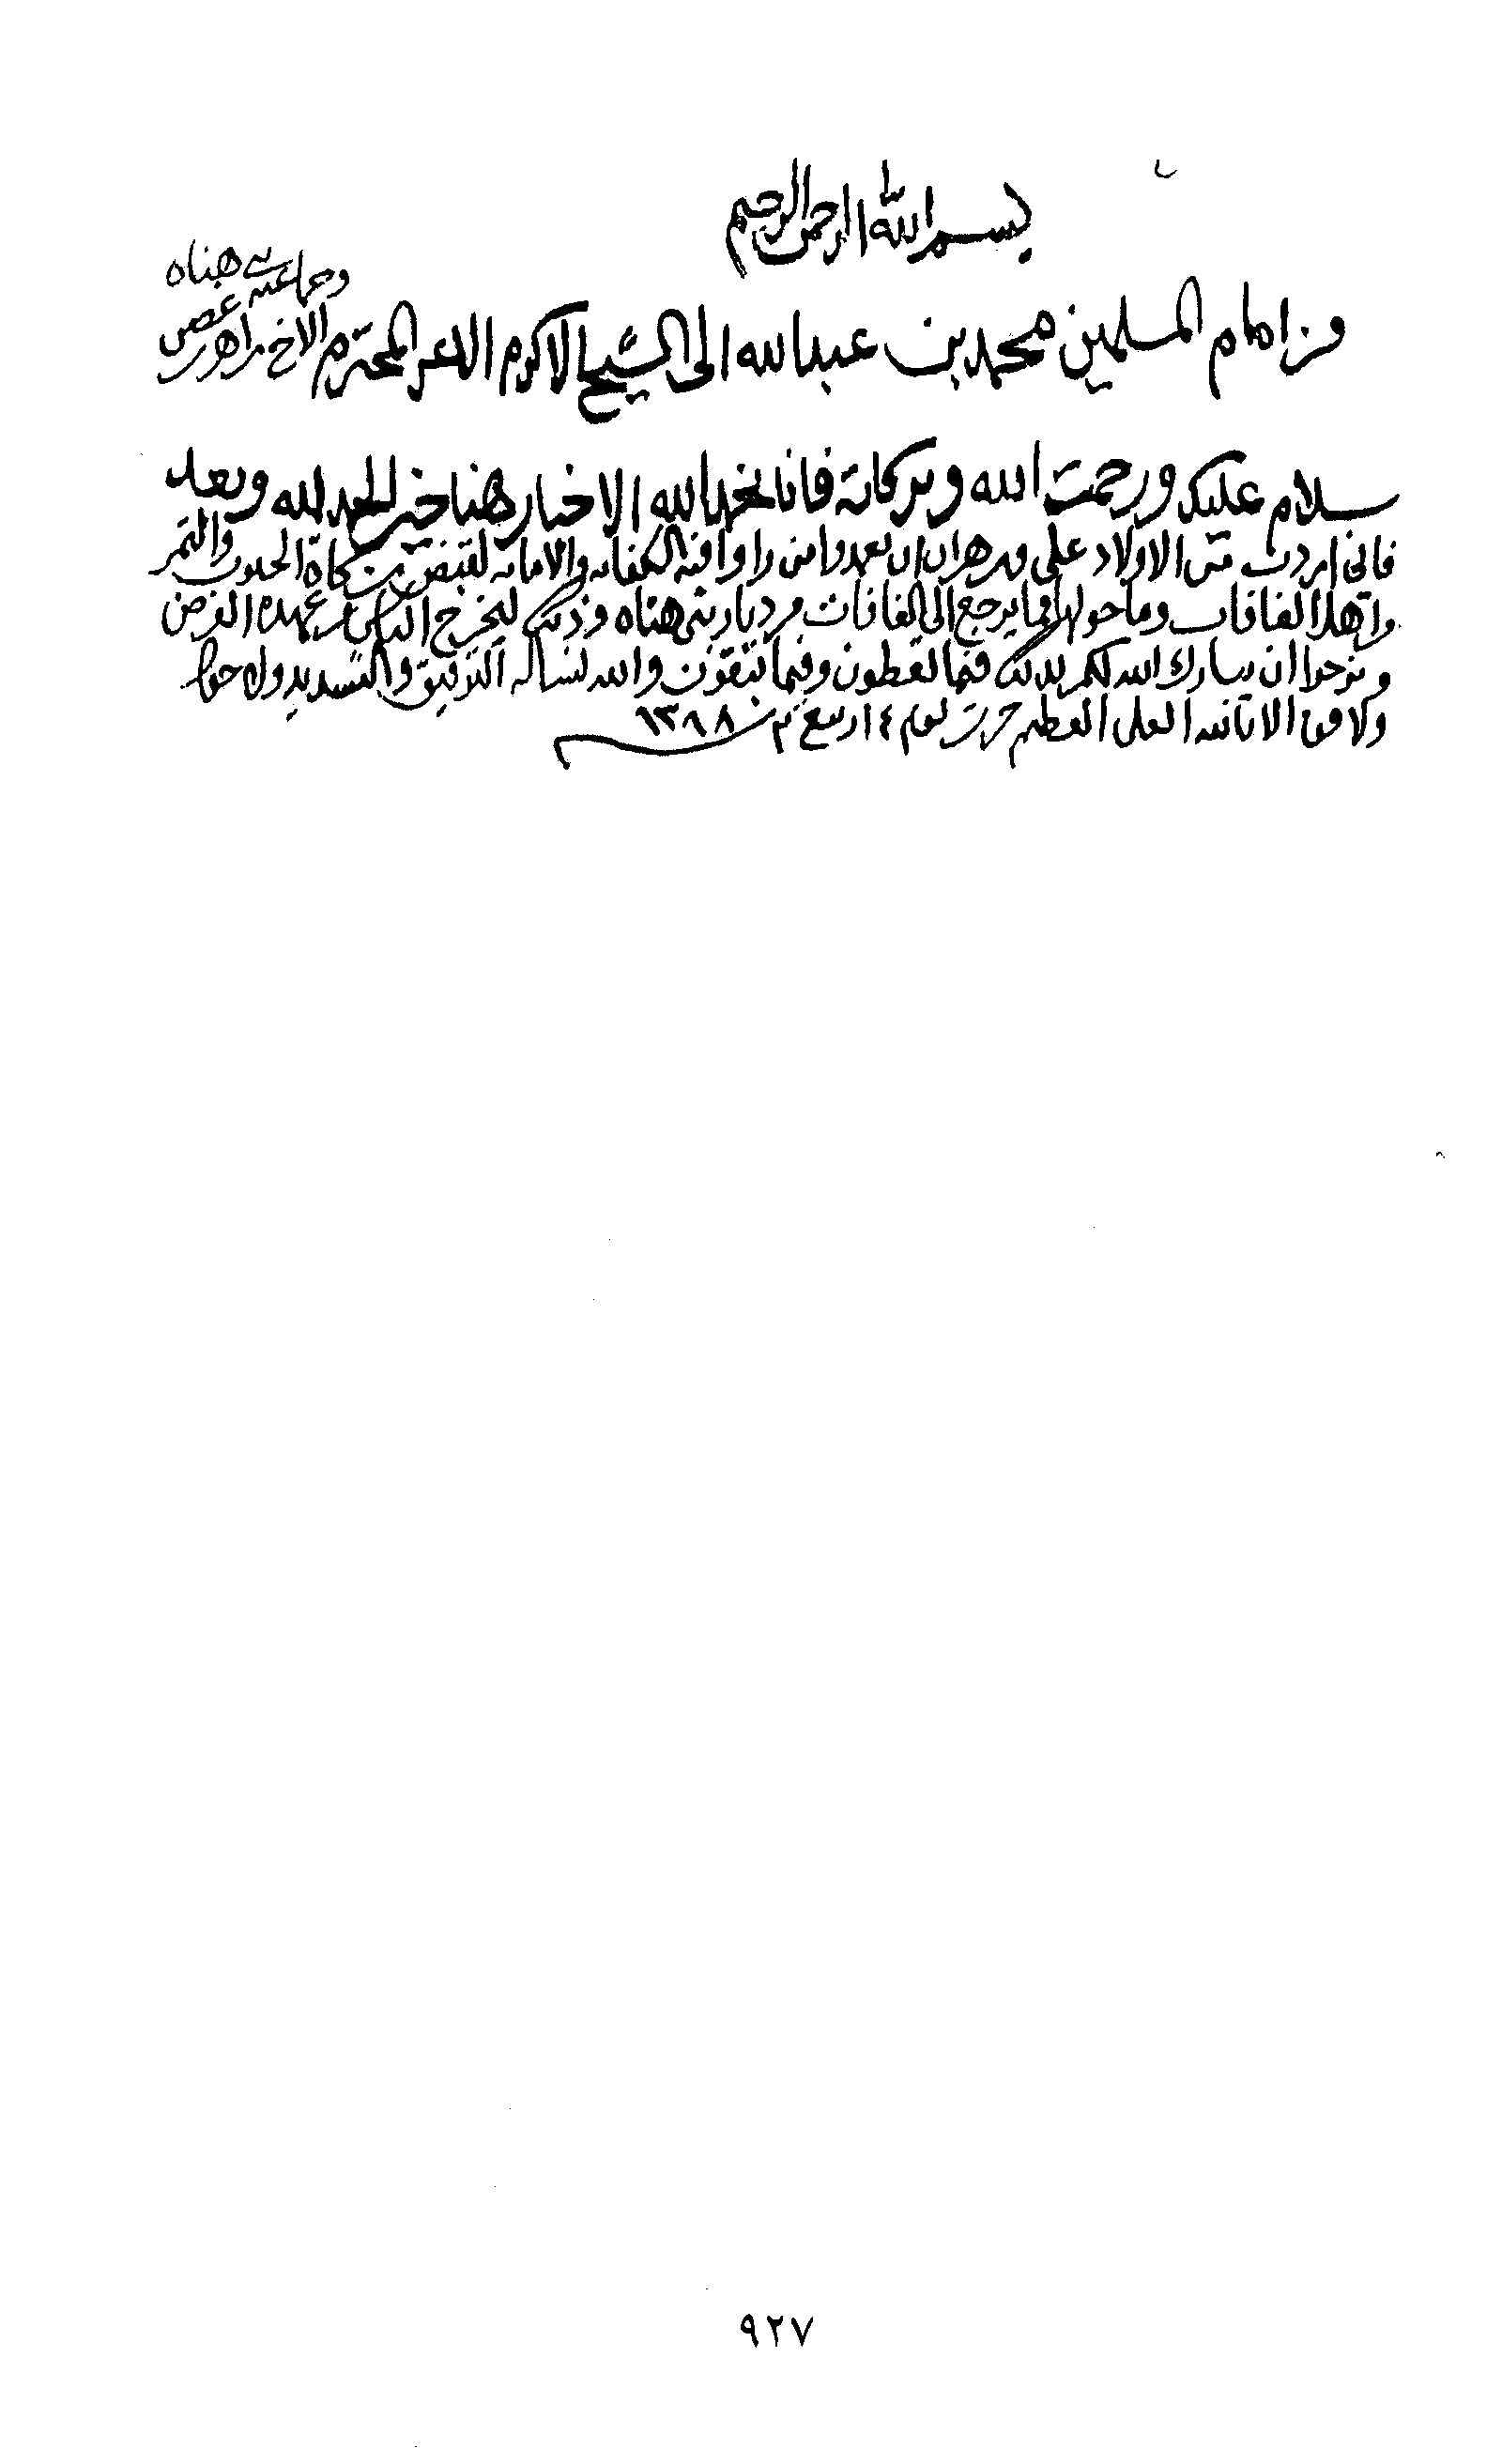 بسم الله الرحمن الرحيم
من امام المسلمين محمد بن عبدالله الى الشيخ الاكرم الاعز المحترم الاخ زاهر بن غصن
وجماعته بني هناه
سلام عليكم ورحمت الله وبركاته فانا نحمد الله الاخبار هنا خير الحمد لله وبعد
فاني اردت من الاولاد علي وزهران ان يعهدوا من راوا فيه الكفايه والامانه لقبض زكاة الحبوب والتمر
من اهل الغافات وما حولها مما يرجع الى الغافات من ديار بني هناه وذلك ليخرج الناس من عهده الفرض
ونرجوا ان يبارك الله لكم بذلك فيما تعطون وفيما تبقون والله نساله التوفيق والتسديد ولا حول
ولا قوة الا بالله العلي العظيم حررت يوم ١٤ ربيع ٢ سنة ١٣٨٨
٩٢٧